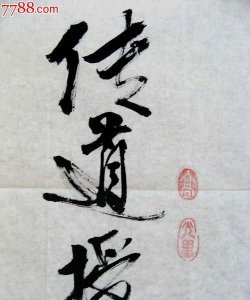 7788.com
传道授